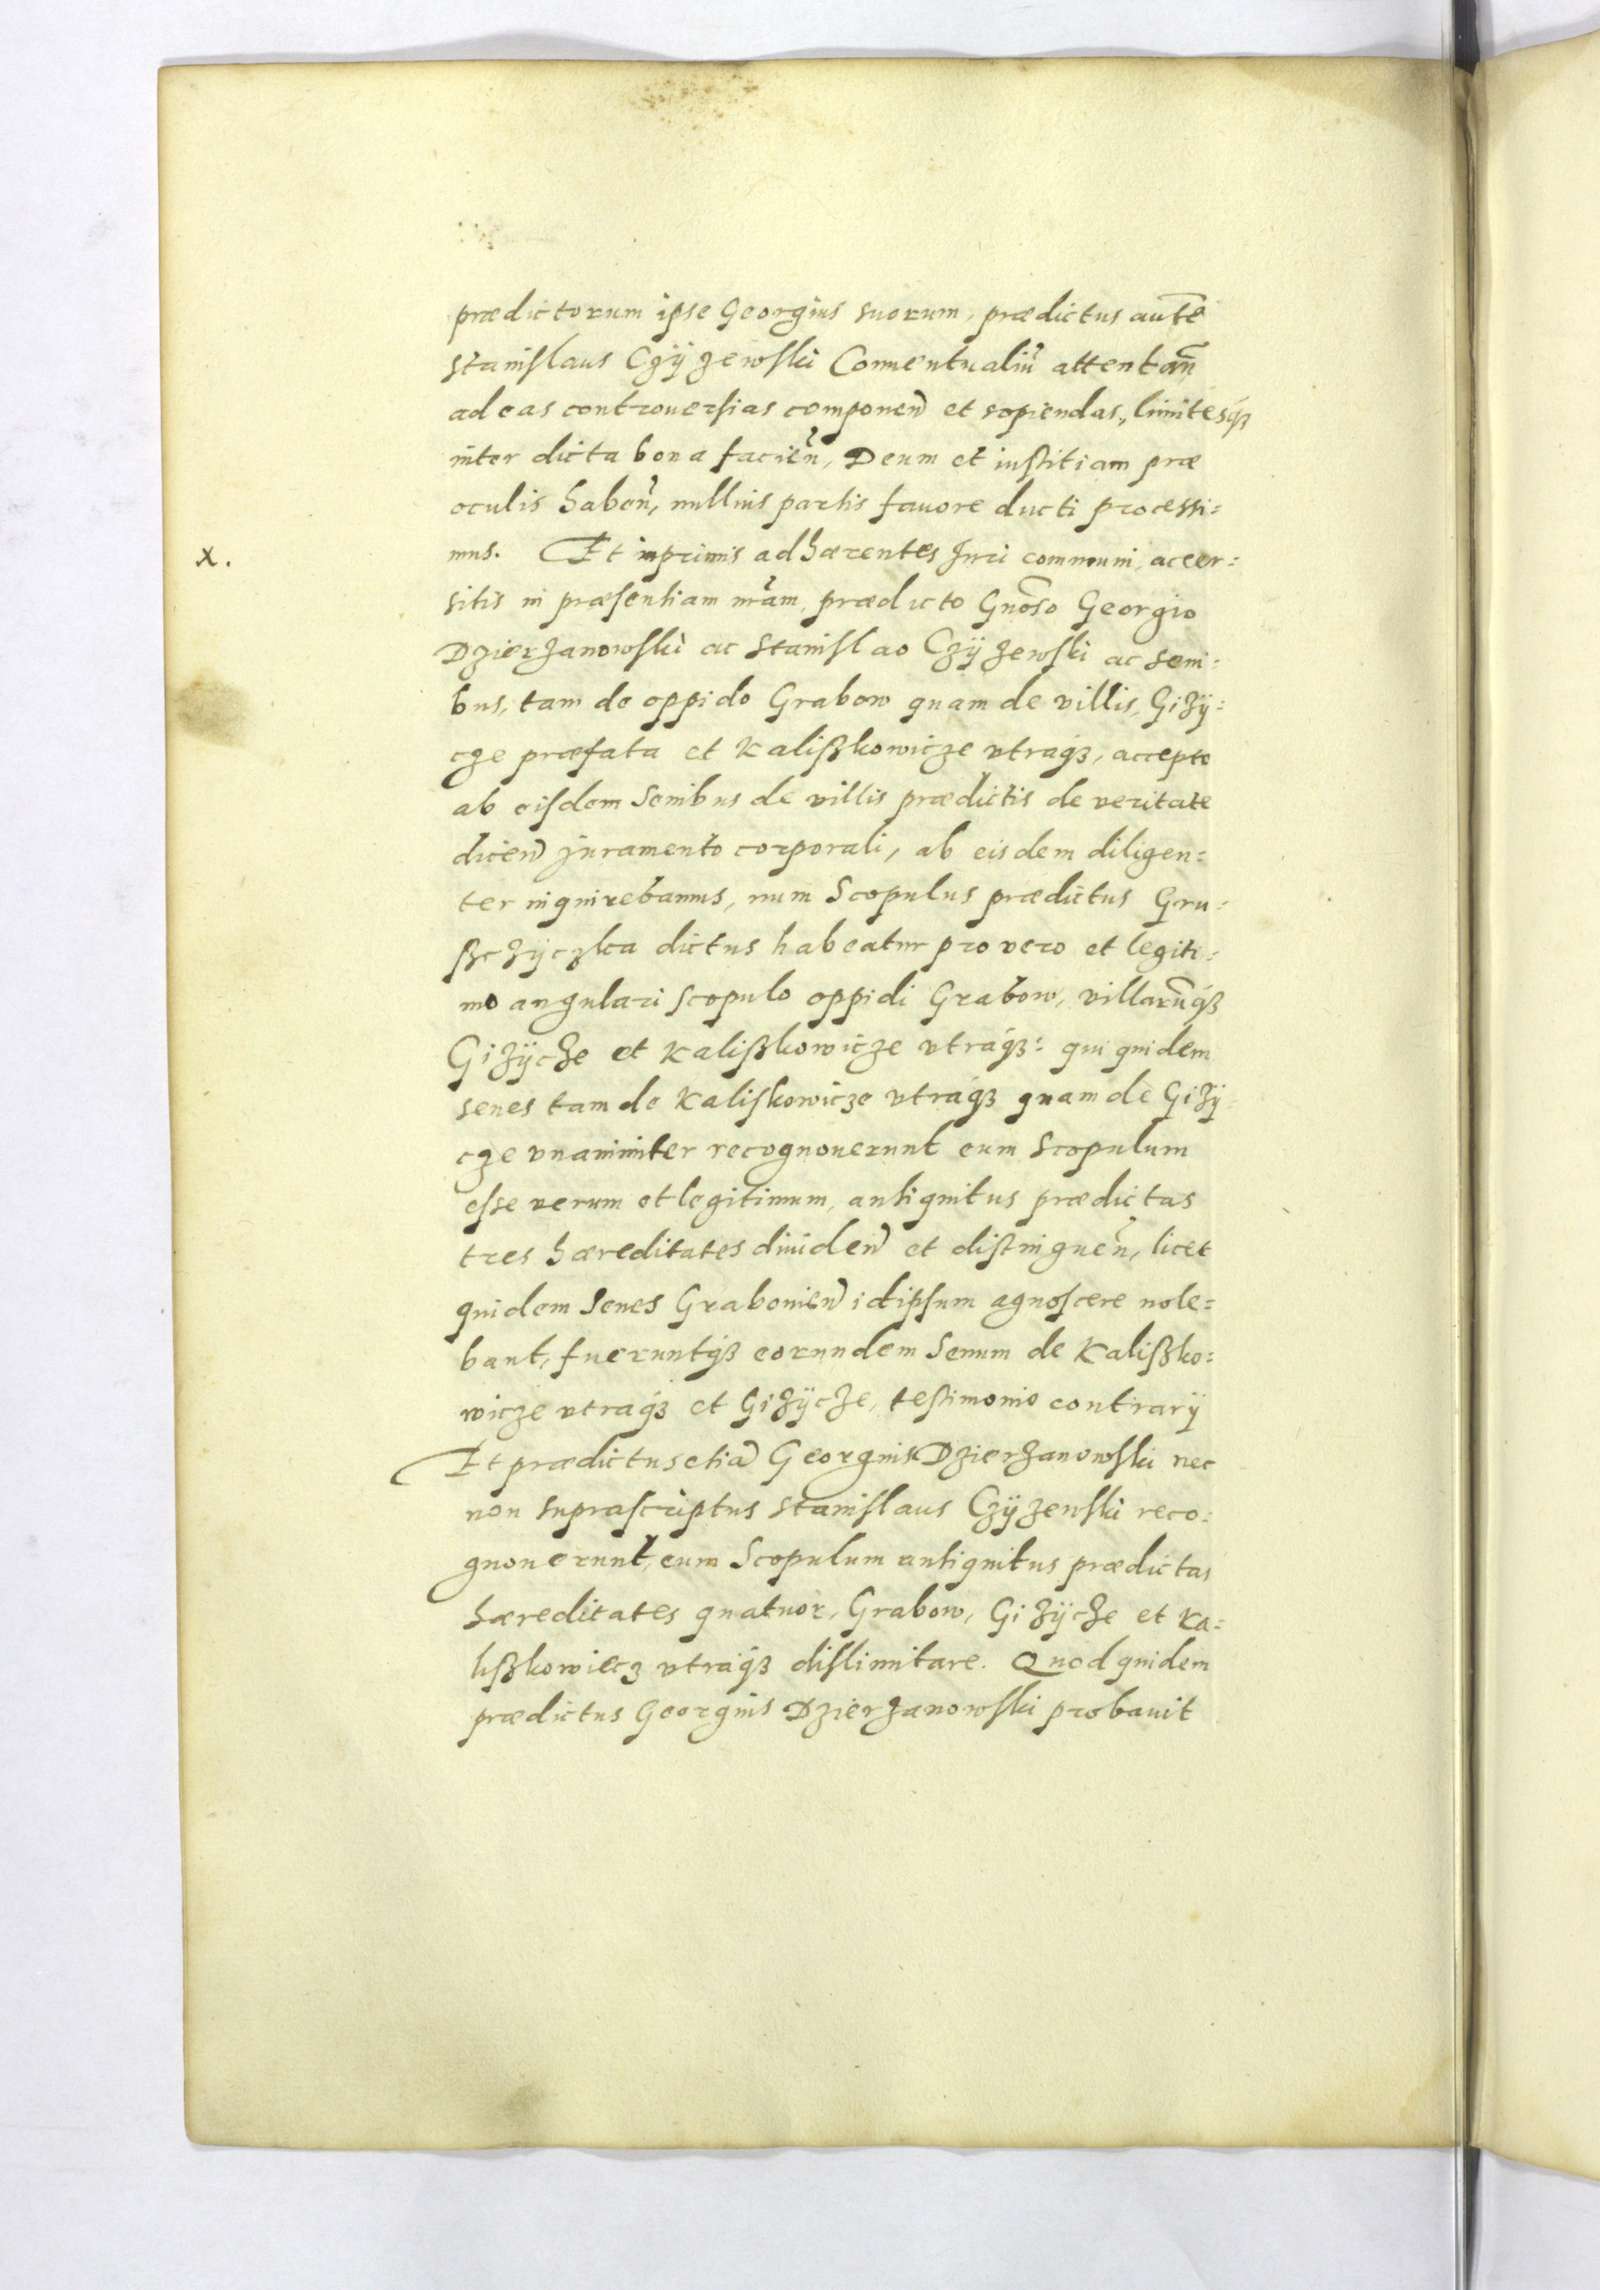 prædictorum ipse Georgius suorum, prædictus autē
Stanislaus Czÿzewski Conuentualiū attentan̄
ad eas controuersias componen̄ et sopiendas, limitesq₃
inter dicta bona facien̄, Deum et iustitiam præ
oculis haben̄, nullius partis fauore ducti processi=
x. mus. Et inprimis adhærentes Juri communi, accer=
sitis in præsentiam nr̄am, prædicto Gnōso Georgio
Dzierżanowski ac Stanislao Czÿzewski ac seni=
bus, tam de oppido Grabow quam de villis, Giżÿ=
cze præfata et Kalißkowicze vtraq₃, accepto
ab eisdem Senibus de villis prædictis de veritate
dicen̄ juramento corporali, ab eisdem diligen=
ter inquirebamus, num Scopulus prædictus Gru=
szczÿczka dictus habeatur pro vero et legiti=
mo angulari scopulo oppidi Grabow, villarūq₃
Giżÿcże et Kalißkowicze vtraq₃: qui quidem
senes tam de Kaliskowicze vtraq₃ quam de Giżÿ=
cze vnanimiter recognouerunt eum Scopulum
esse verum et legitimum, antiquitus prædictas
tres hæreditates diuiden̄ et distinguen̄, licet
quidem Senes Grabouien̄ idipsum agnoscere nole=
bant, fueruntq₃ eorundem Senum de Kalißko=
wicze vtraq₃ et Giżÿcże, testimonio contrarÿ
Et prædictus etiā Georgius Dzierżanowski nec
non suprascriptus Stanislaus Czÿzewski reco=
gnouerunt, eum Scopulum antiquitus prædictas
hæreditates quatuor, Grabow, Giżÿcże et Ka=
lißkowiecz vtraq₃ dislimitare. Quod quidem
prædictus Georgius Dzierżanowski probauit